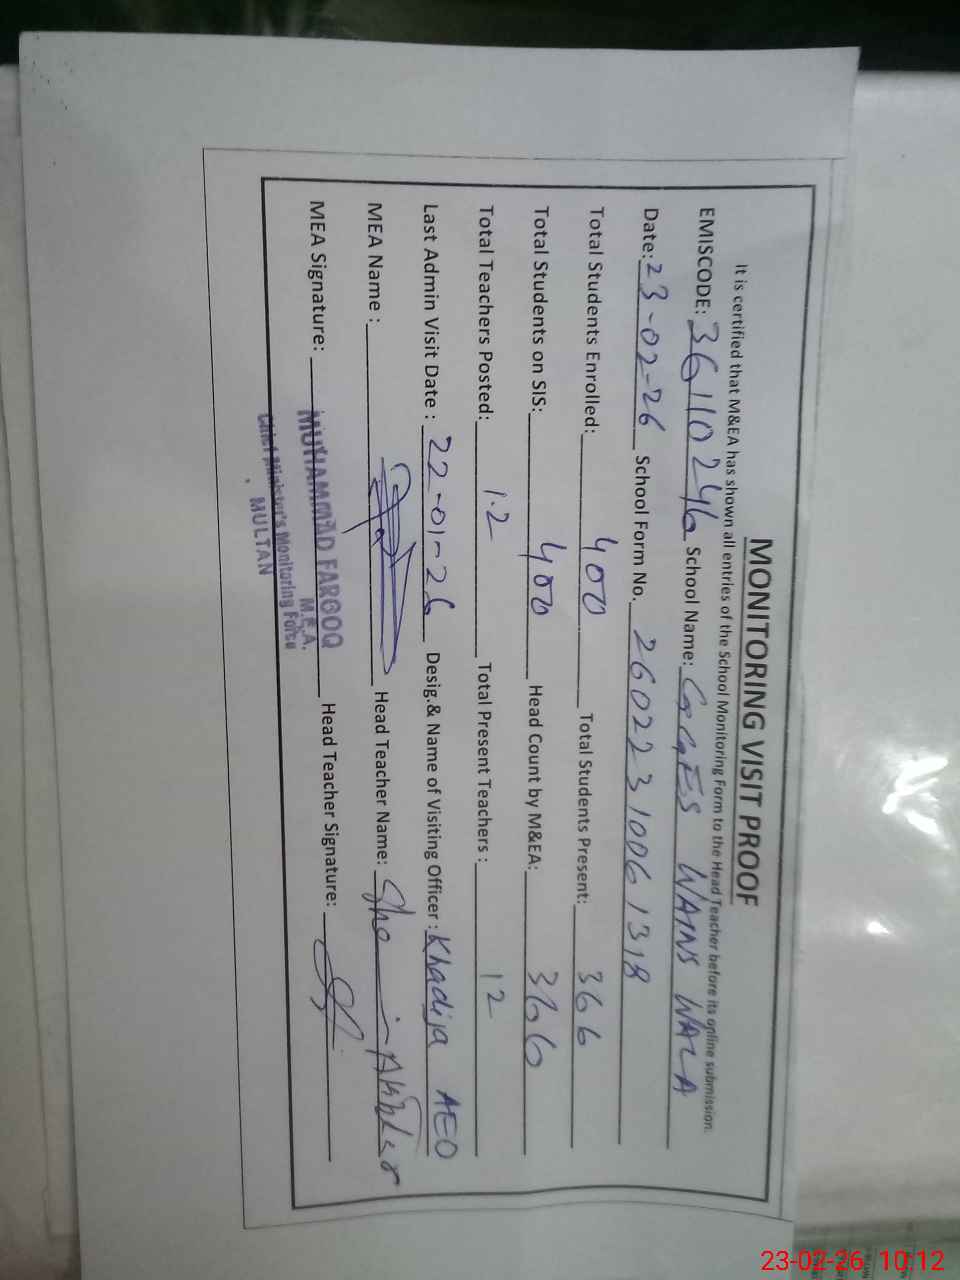 MONITORING VISIT PROOF
It is certified that M&EA has shown all entries of the School Monitoring Form to the Head Teacher before its online submission.
EMISCODE: 36110246 School Name: GGES WAINS WALA
Date: 23-02-26 School Form No. 26022310061318
Total Students Enrolled: 400 Total Students Present: 366
Total Students on SIS: 400 Head Count by M&EA: 366
Total Teachers Posted: 12 Total Present Teachers : 12
Last Admin Visit Date : 22-01-26 Desig.& Name of Visiting Officer : Khadija AEO
MEA Name : Head Teacher Name: Akhtar
MEA Signature: Head Teacher Signature:
MUHAMMAD FAROOQ
M.E.A.
Chief Minister's Monitoring Force
MULTAN
23-02-26 10:12